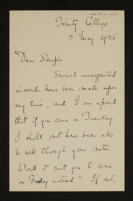 Trinity College
May 1926
Dear
Several unexpected
inroads have been made upon
my time, and I am afraid
that if you come on Tuesday
I shall not have been able
to look through your notes.
Would it suit you to come
on Friday instead? If not,